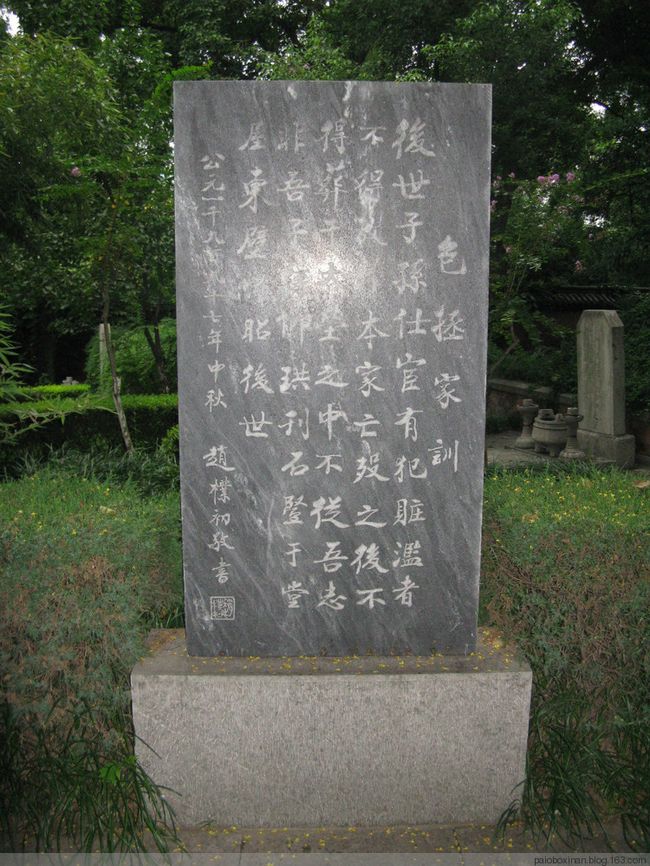 包拯家訓
後世子孫仕宦有犯賍濫者
不得放本家亡歿之後不
得葬塋之中不從吾志
非吾子仰珙刊石豎于堂
屋東壁昭後世
公元一千九百年中秋 趙樸初敬書
paioboxinan.blog.163.com